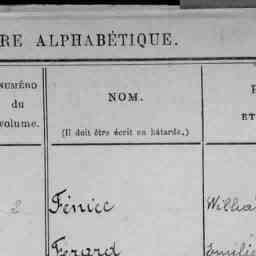 RE ALPHABÉTIQUE.
NUMÉRO
du
volume.
NOM.
(Il doit être écrit en bâtarde.)
ET
2 Fénicc Willia
Férard Emilie